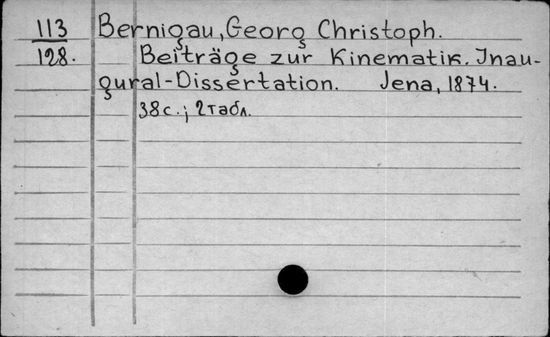 113 Bernigau, Georg Christoph.
128. Beiträge zur Kinematik. Inau-
gural-Dissertation. Jena, 1874.
38с.; 2табл.